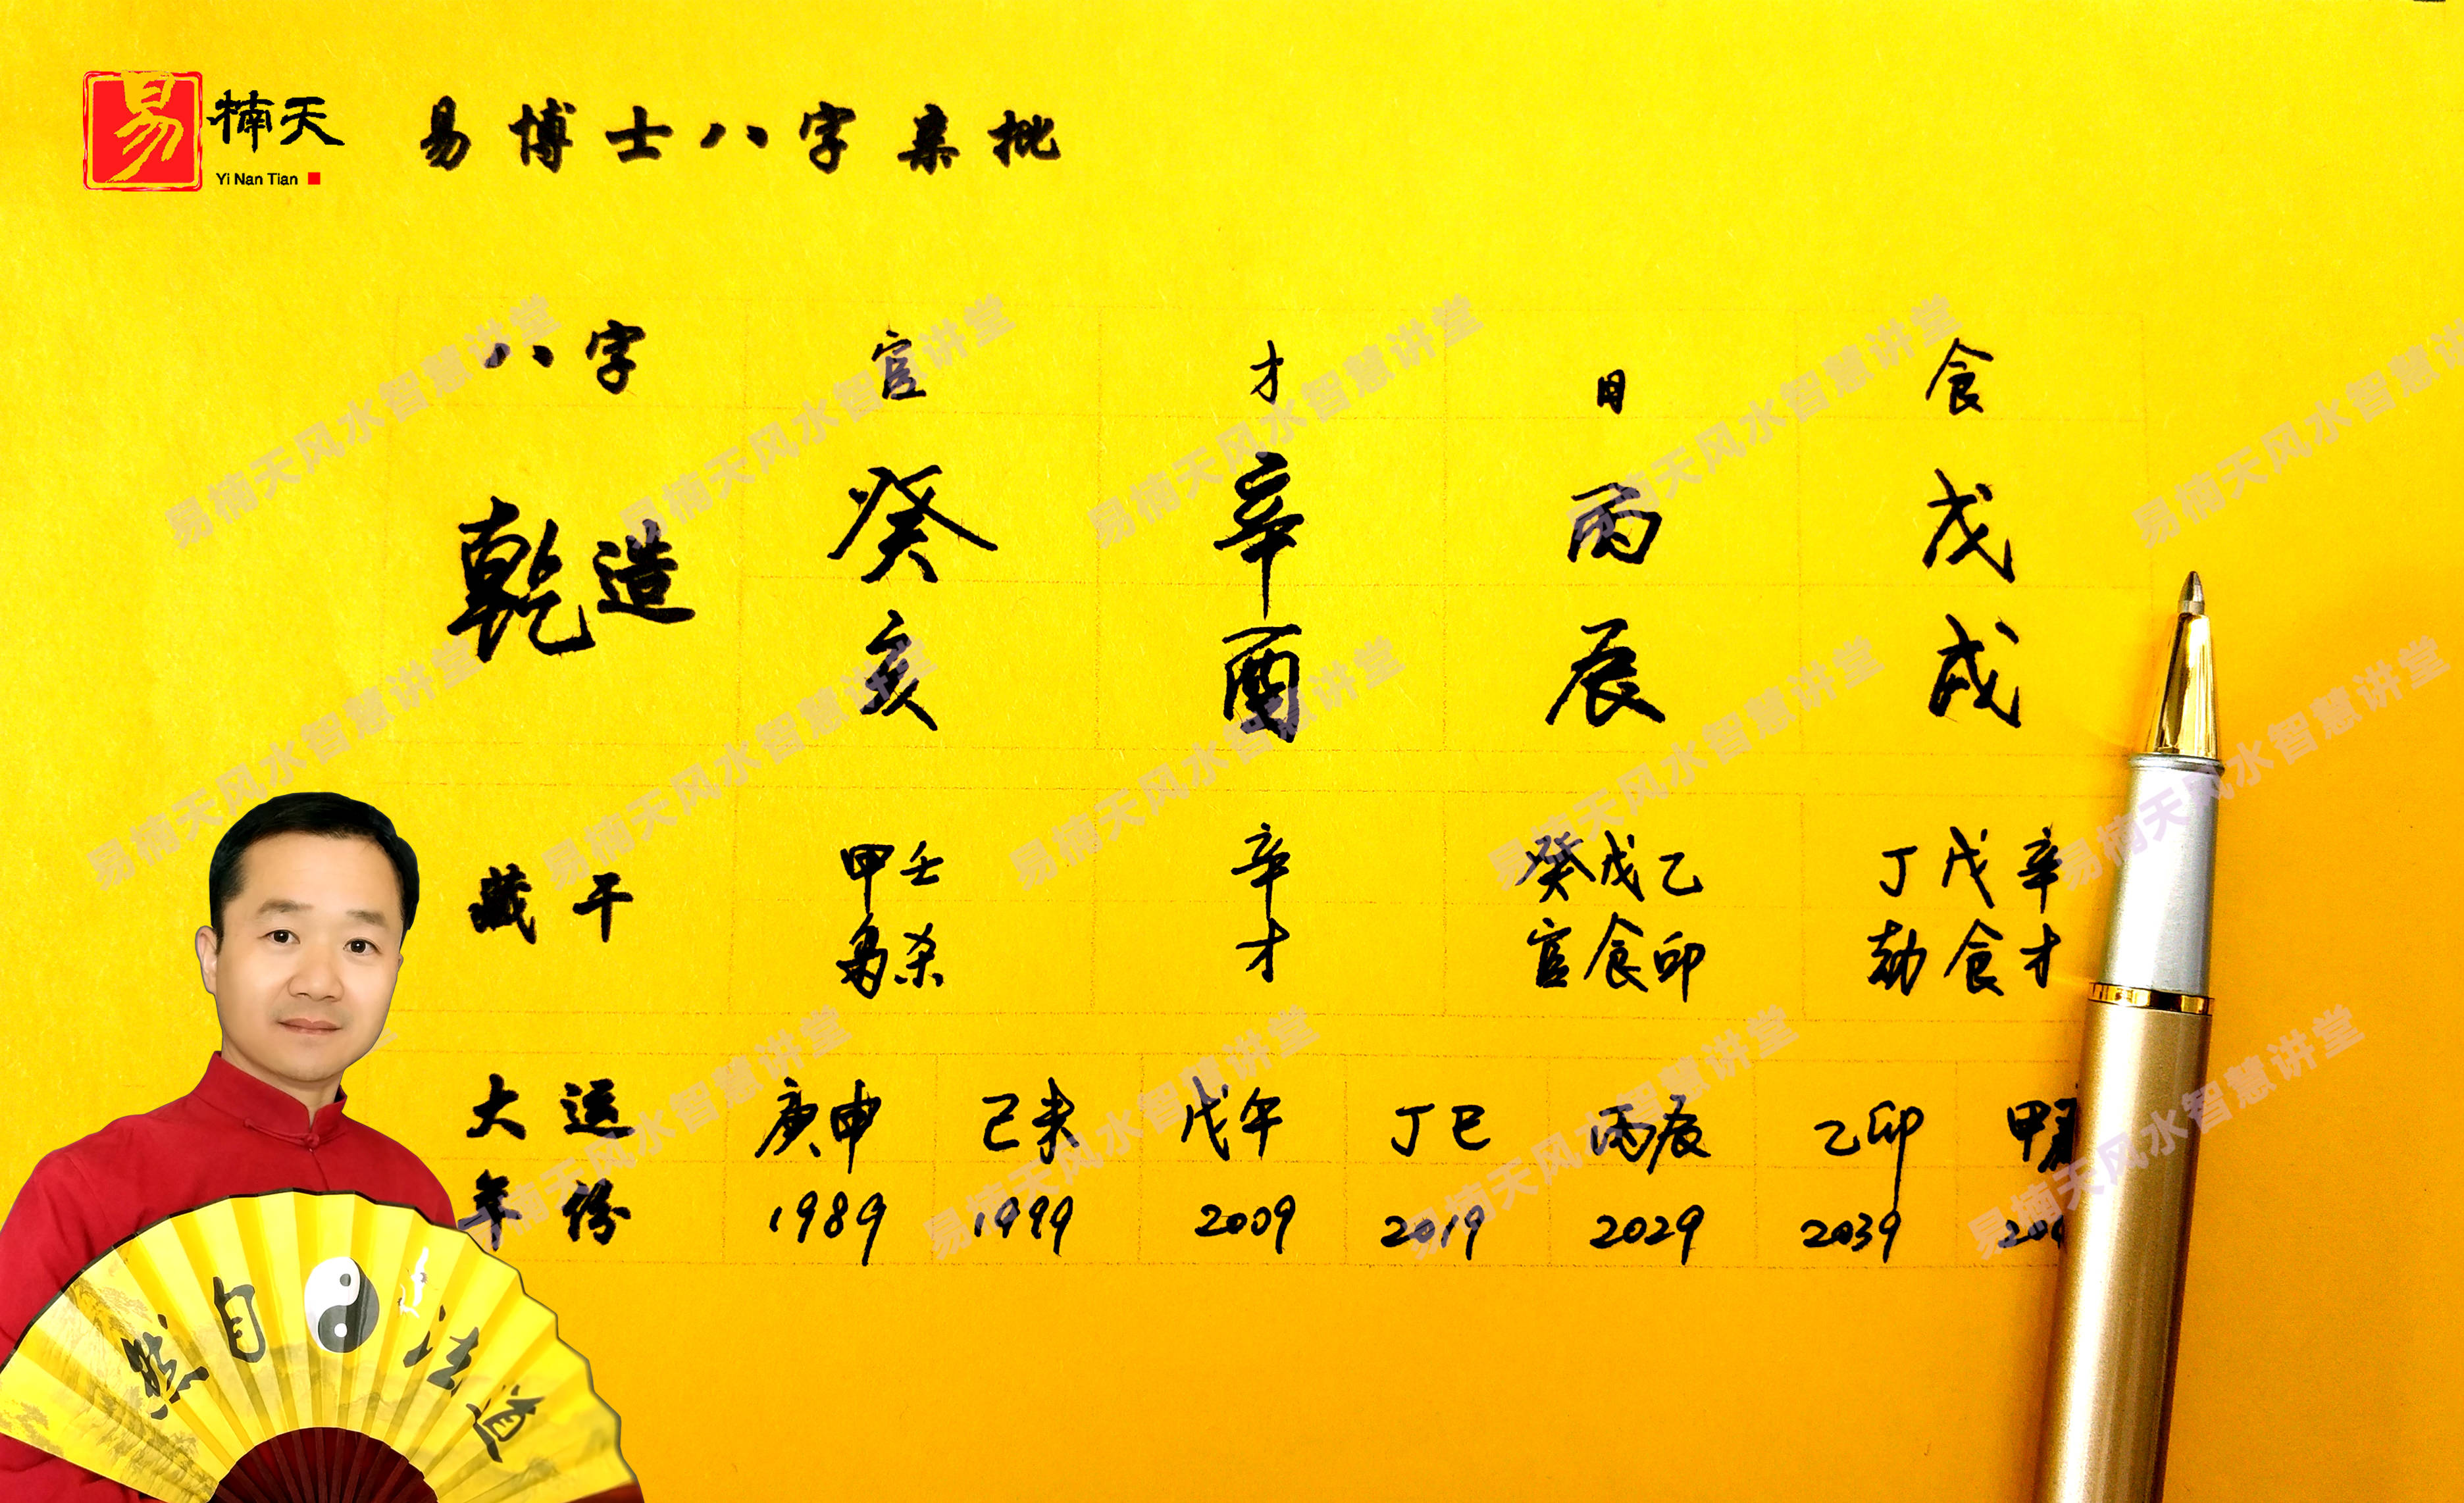 易楠天
Yi Nan Tian
易博士八字亲批
八字 官 才 日 食
乾造 癸 辛 丙 戊
亥 酉 辰 戌
藏干 甲壬 辛 癸戊乙 丁戊辛
枭杀 才 官食印 劫食才
大运 庚申 己未 戊午 丁巳 丙辰 乙卯 甲
年份 1989 1999 2009 2019 2029 2039
道法自然
易楠天风水智慧讲堂